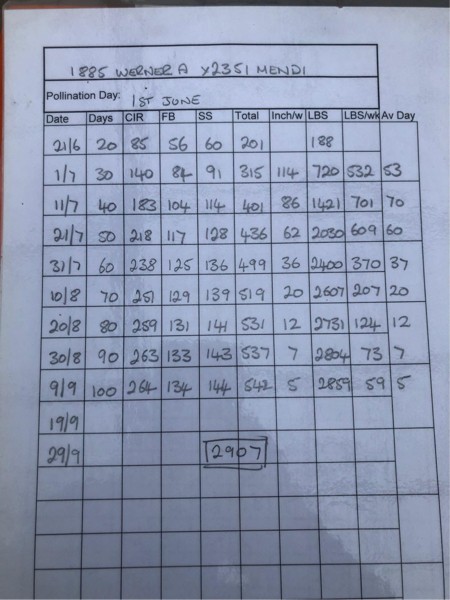 1885 WERNER A X 2351 MENDI
Pollination Day: 1ST JUNE
Date Days CIR FB SS Total Inch/w LBS LBS/wk Av Day
21/6 20 85 56 60 201 188
1/7 30 140 84 91 315 114 720 532 53
11/7 40 183 104 114 401 86 1421 701 70
21/7 50 218 117 128 436 62 2030 609 60
31/7 60 238 125 136 499 36 2400 370 37
10/8 70 251 129 139 519 20 2607 207 20
20/8 80 259 131 141 531 12 2731 124 12
30/8 90 263 133 143 537 7 2804 73 7
9/9 100 264 134 144 542 5 2859 59 5
19/9
29/9 2907